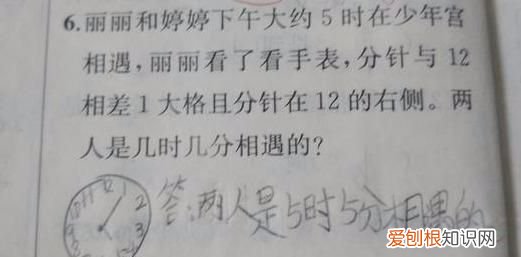 6.丽丽和婷婷下午大约5时在少年宫
相遇,丽丽看了看手表,分针与12
相差1大格且分针在12的右侧。两
人是几时几分相遇的?
12 1
2
3
答:两人是5时5分相遇的
爱刨根知识网